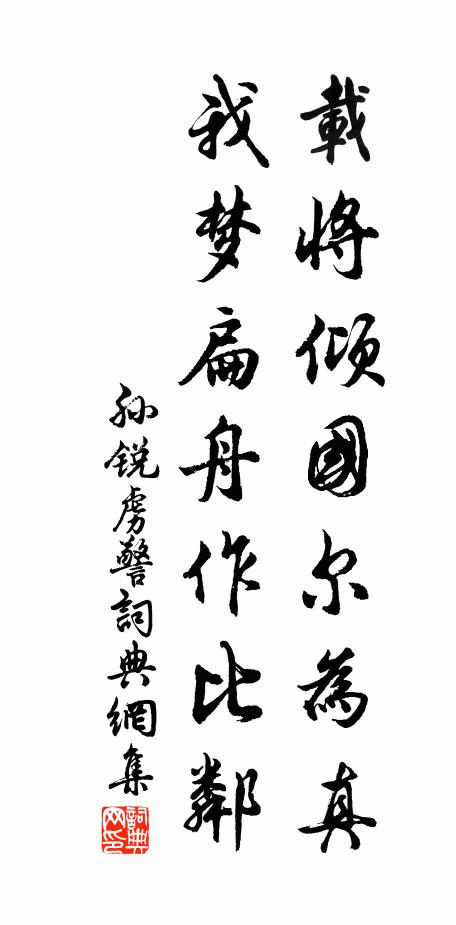 載將傾國尔為真
我梦扁舟作比鄰
孙锐虏警詞典網集
詞典网印